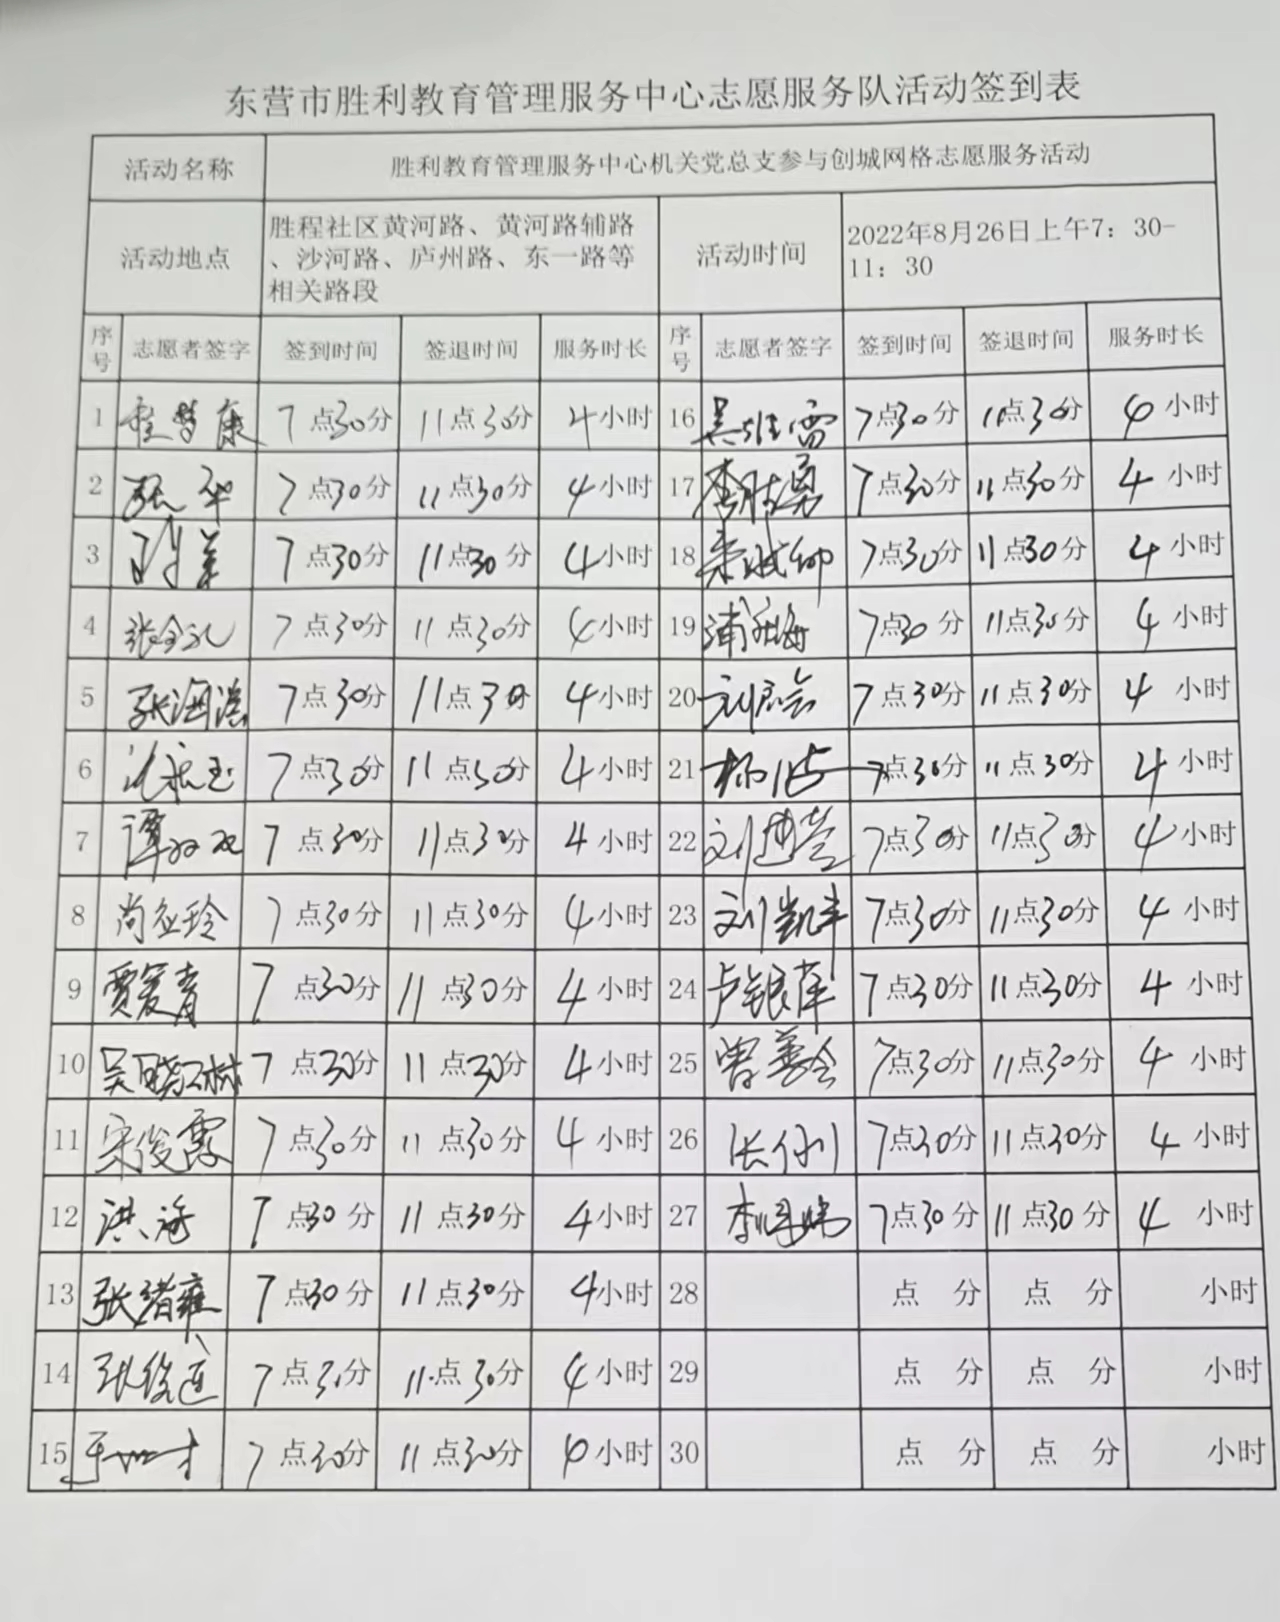 东营市胜利教育管理服务中心志愿服务队活动签到表
活动名称 胜利教育管理服务中心机关党总支参与创城网格志愿服务活动
活动地点 胜程社区黄河路、黄河路辅路、沙河路、庐州路、东一路等相关路段 活动时间 2022年8月26日上午7：30-11：30
序号 志愿者签字 签到时间 签退时间 服务时长 序号 志愿者签字 签到时间 签退时间 服务时长
1 7点30分 11点30分 4小时 16 7点30分 11点30分 4小时
2 张华 7点30分 11点30分 4小时 17 李胜勇 7点30分 11点30分 4小时
3 7点30分 11点30分 4小时 18 7点30分 11点30分 4小时
4 张全礼 7点30分 11点30分 4小时 19 7点30分 11点30分 4小时
5 张海滨 7点30分 11点30分 4小时 20 7点30分 11点30分 4小时
6 7点30分 11点30分 4小时 21 7点30分 11点30分 4小时
7 谭双双 7点30分 11点30分 4小时 22 7点30分 11点30分 4小时
8 7点30分 11点30分 4小时 23 刘凯丰 7点30分 11点30分 4小时
9 贾爱青 7点30分 11点30分 4小时 24 卢银萍 7点30分 11点30分 4小时
10 吴晓林 7点30分 11点30分 4小时 25 7点30分 11点30分 4小时
11 宋俊霞 7点30分 11点30分 4小时 26 7点30分 11点30分 4小时
12 洪海 7点30分 11点30分 4小时 27 7点30分 11点30分 4小时
13 张绪雍 7点30分 11点30分 4小时 28 点 分 点 分 小时
14 7点30分 11点30分 4小时 29 点 分 点 分 小时
15 7点30分 11点30分 4小时 30 点 分 点 分 小时